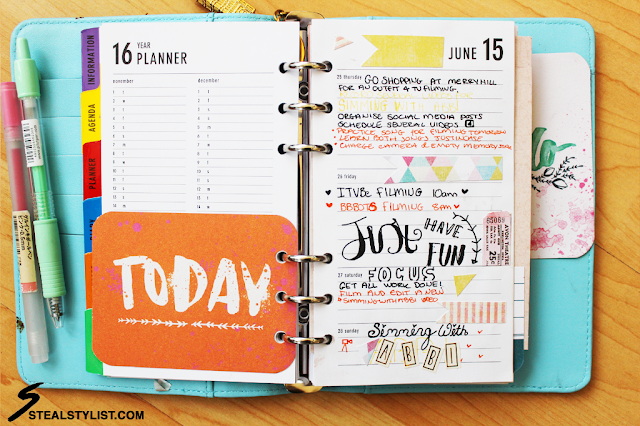 INFORMATION
AGENDA
PLANNER
16 YEAR PLANNER
november
december
TODAY
JUNE 15
25 thursday
GO SHOPPING AT MERRYHILL
FOR AN OUTFIT 4 TV FILMING,
SIMMING WITH ABBI
ORGANISE SOCIAL MEDIA POSTS
SCHEDULE SEVERAL VIDEOS
PRACTICE SONG FOR FILMING TOMORROW
LEARN BOTH SONGS JUSTINCASE
CHARGE CAMERA & EMPTY MEMORY
26 friday
ITVBe FILMING 10am
FILMING 8am
JUST HAVE FUN
AVON THEATRE
25¢
27 saturday
FOCUS
GET ALL WORK DONE!
FILM AND EDIT
SIMMINGWITHABBI
28 sunday
Simming With
ABBI
STEALSTYLIST.COM